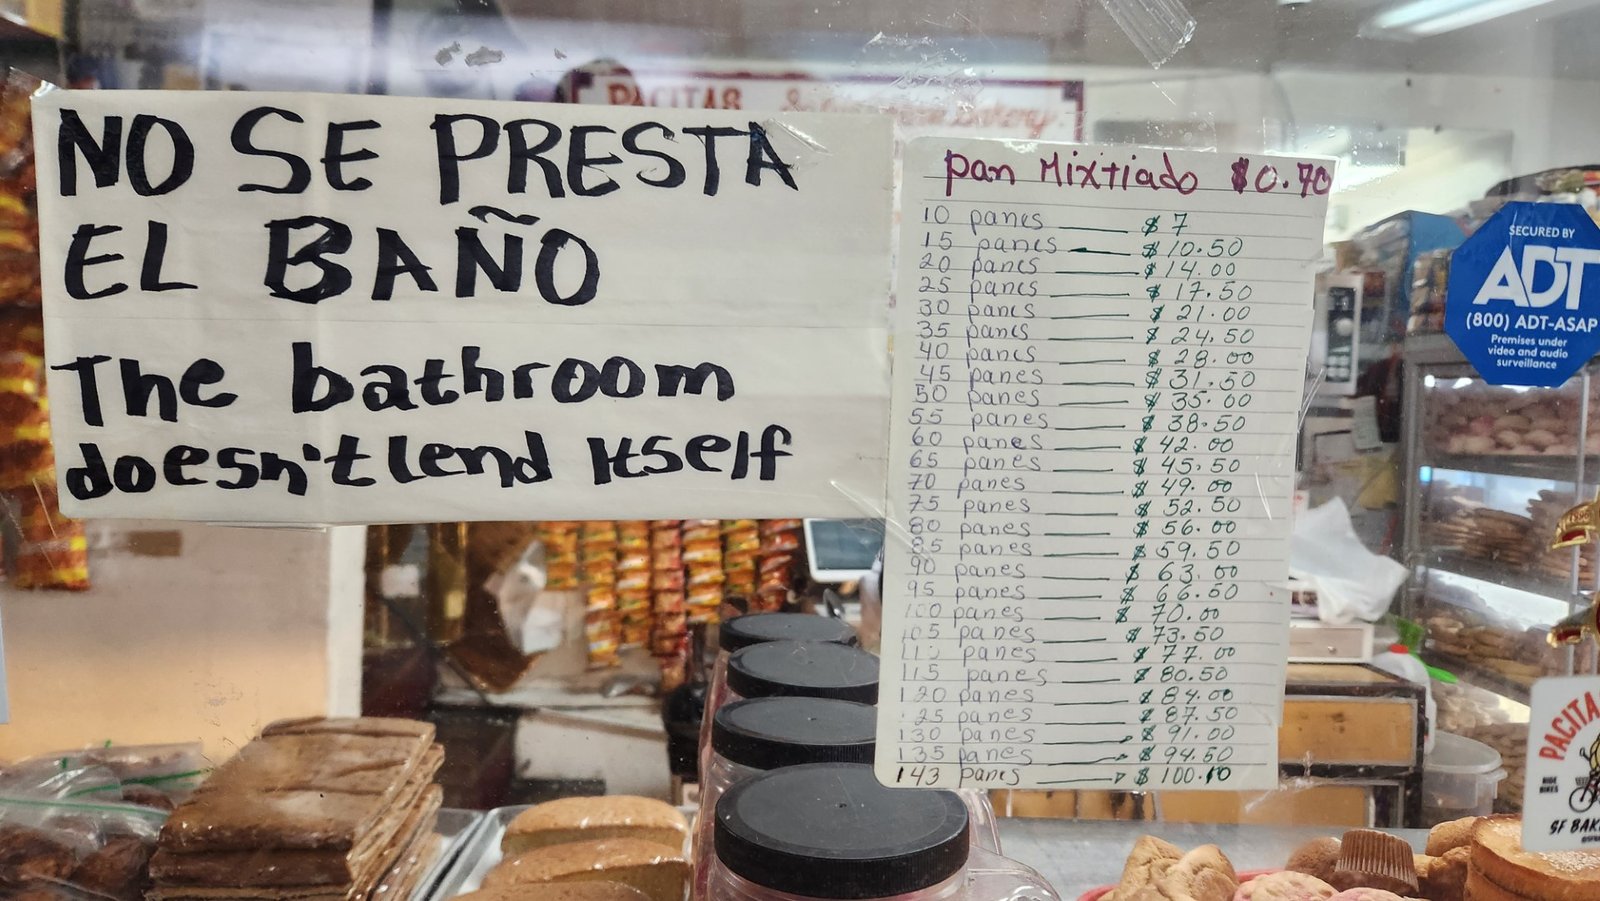 NO SE PRESTA
EL BAÑO
The bathroom
doesn't lend Itself
PACITAS
pan Mixtiado $0.70
10 panes $7
15 panes $10.50
20 panes $14.00
25 panes $17.50
30 panes $21.00
35 panes $24.50
40 panes $28.00
45 panes $31.50
50 panes $35.00
55 panes $38.50
60 panes $42.00
65 panes $45.50
70 panes $49.00
75 panes $52.50
80 panes $56.00
85 panes $59.50
90 panes $63.00
95 panes $66.50
100 panes $70.00
105 panes $73.50
110 panes $77.00
115 panes $80.50
120 panes $84.00
125 panes $87.50
130 panes $91.00
135 panes $94.50
143 panes $100.10
SECURED BY
ADT
(800) ADT-ASAP
Premises under
video and audio
surveillance
PACITA
RIDE
BIKES
SF BAK